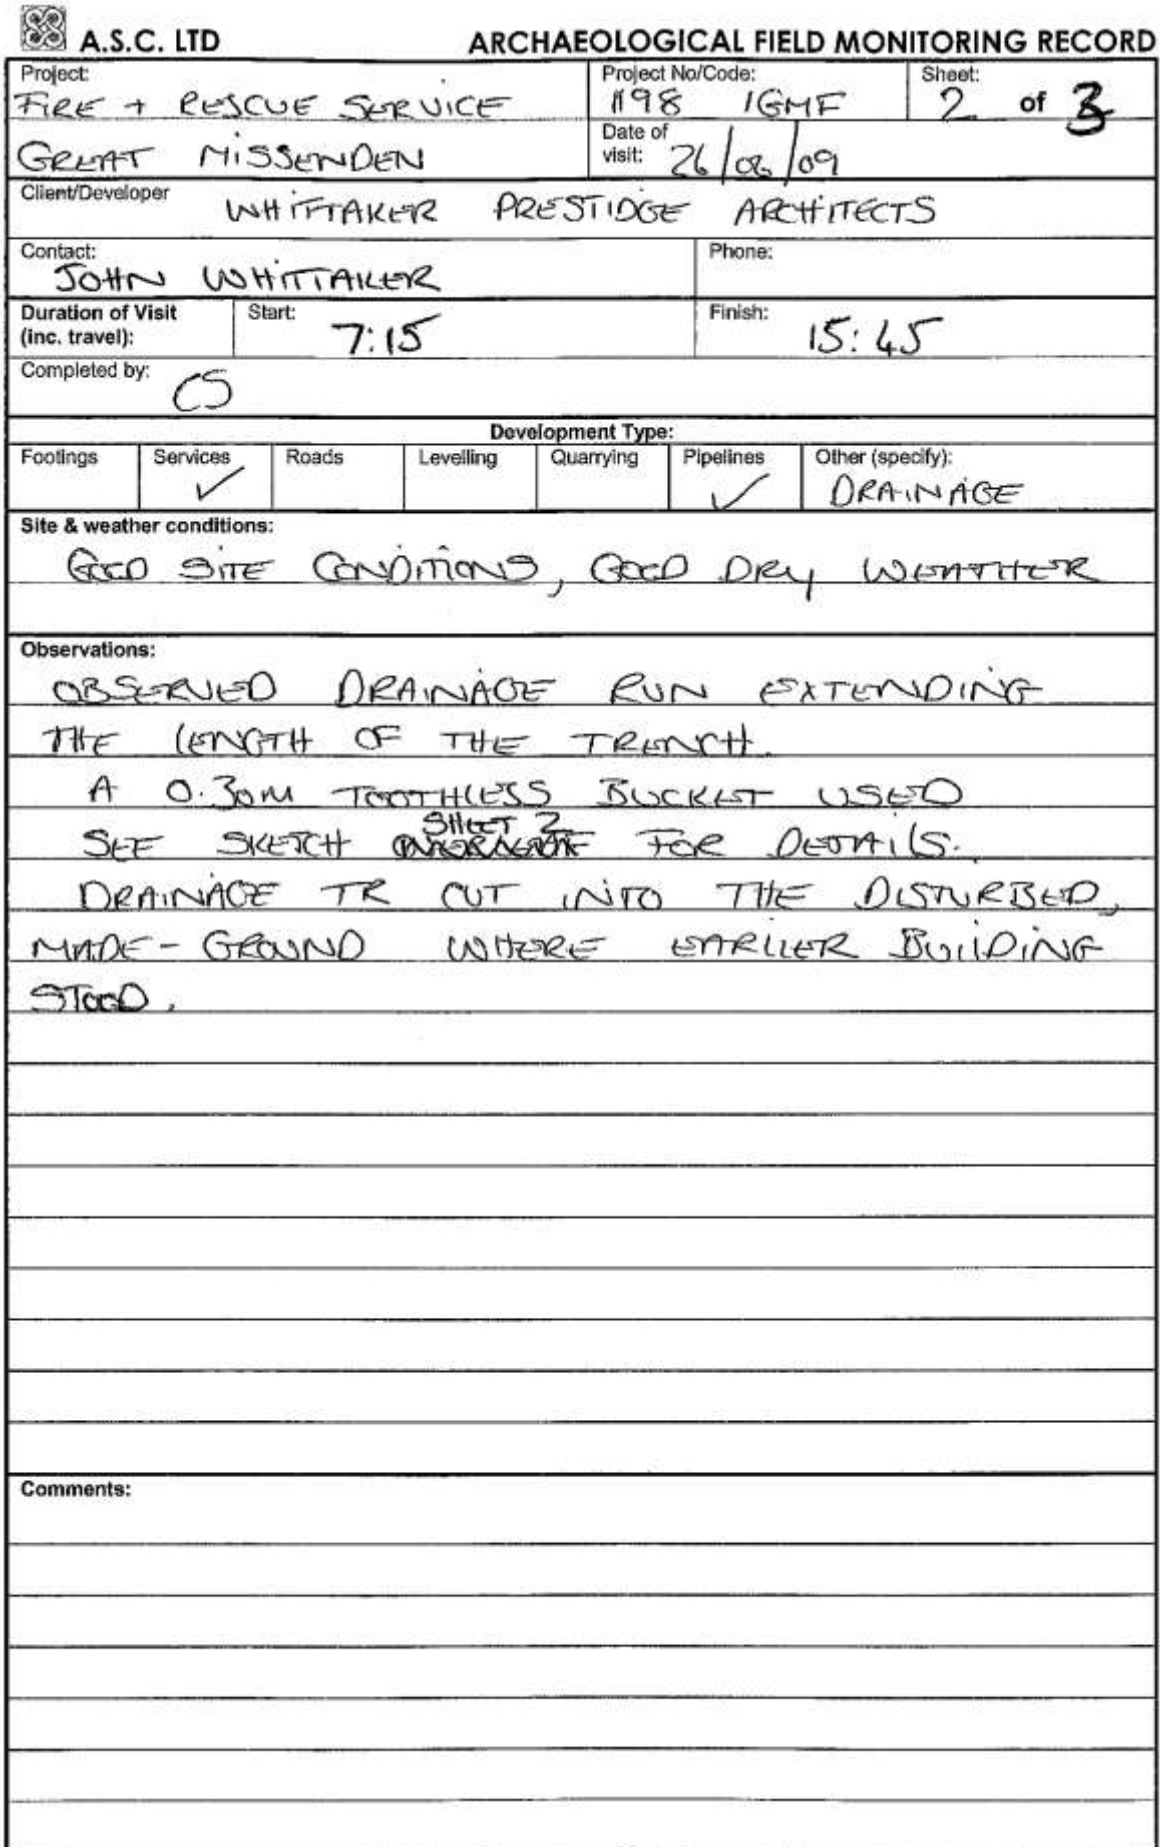 A.S.C. LTD ARCHAEOLOGICAL FIELD MONITORING RECORD
Project: Project No/Code: Sheet:
FIRE + RESCUE SERVICE 1198 IGMF 2 of 3
GREAT MISSENDEN Date of visit: 26/08/09
Client/Developer WHITTAKER PRESTIDGE ARCHITECTS
Contact: Phone:
JOHN WHITTAKER
Duration of Visit (inc. travel): Start: 7:15 Finish: 15:45
Completed by: CS
Development Type:
Footings Services Roads Levelling Quarrying Pipelines Other (specify):
✓ ✓ DRAINAGE
Site & weather conditions:
GOOD SITE CONDITIONS, GOOD DRY WEATHER
Observations:
OBSERVED DRAINAGE RUN EXTENDING
THE LENGTH OF THE TRENCH.
A 0.30M TOOTHLESS BUCKET USED
SEE SKETCH SHEET 2 FOR DETAILS.
DRAINAGE TR CUT INTO THE DISTURBED,
MADE-GROUND WHERE EARLIER BUILDING
STOOD.
Comments: